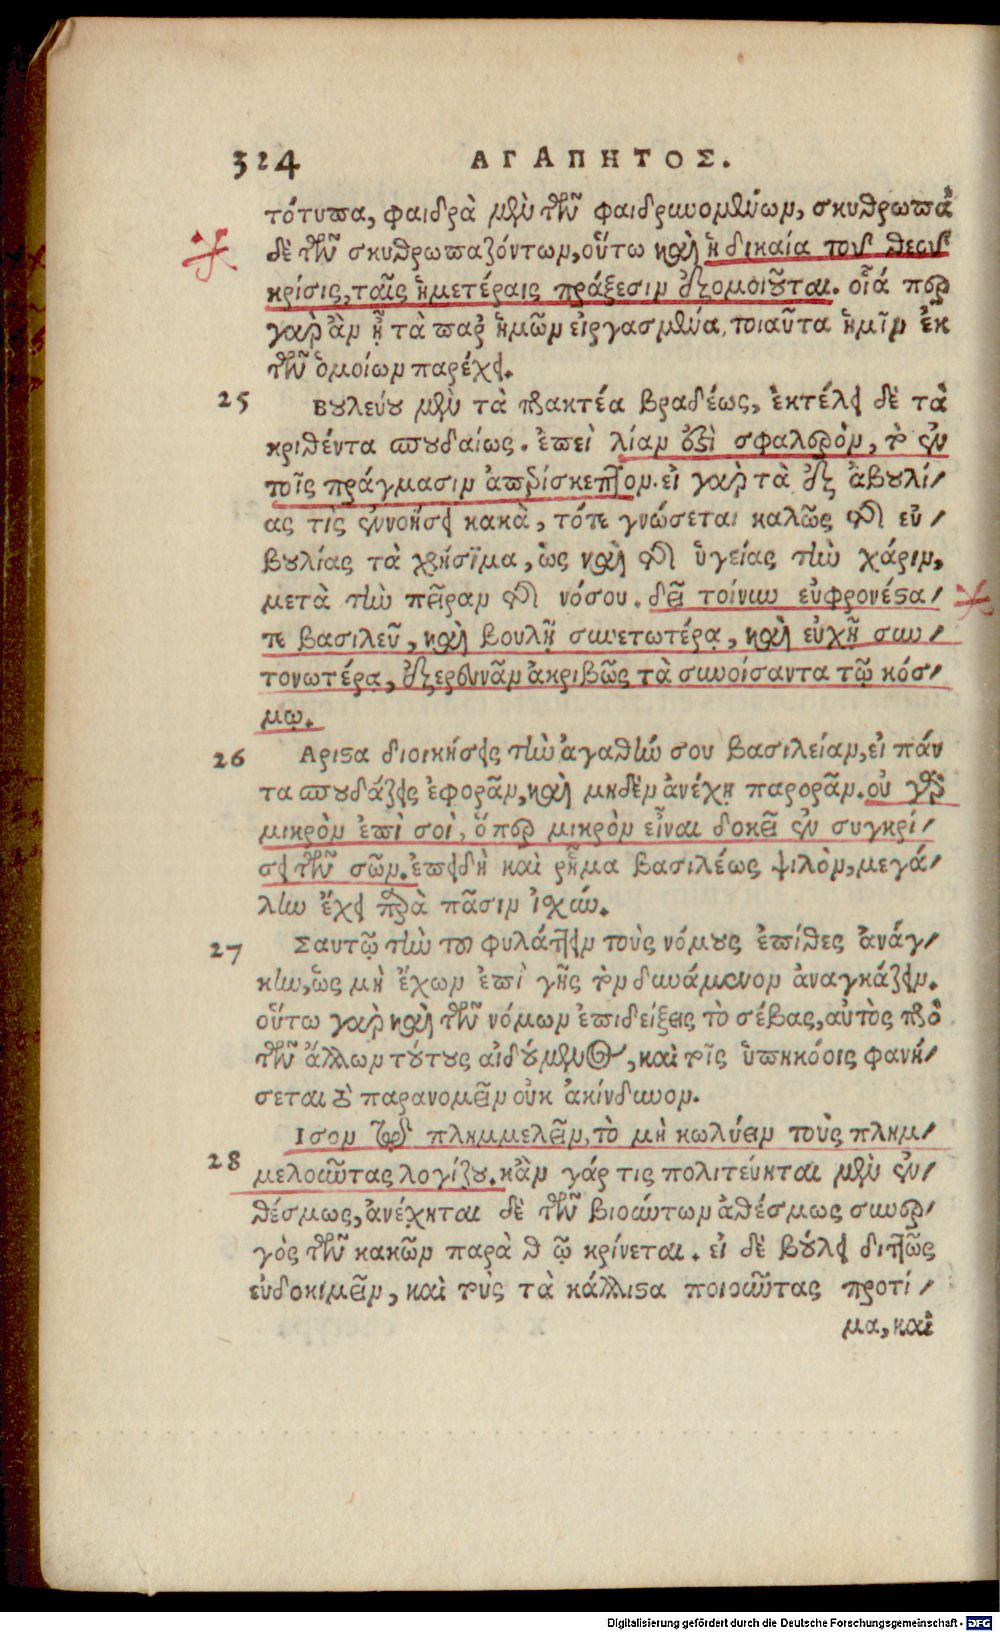 324 ΑΓΑΠΗΤΟΣ.
τότυπα, φαιδρὰ μὲν τῶν φαιδρυνομένων, σκυθρωπὰ
δὲ τῶν σκυθρωπαζόντων, οὕτω καὶ ἡ δικαία τοῦ θεοῦ
κρίσις, ταῖς ἡμετέραις πράξεσιν ἐξομοιοῦται. οἷά περ
γὰρ ἂν ᾖ τὰ παρ' ἡμῶν εἰργασμένα, τοιαῦτα ἡμῖν ἐκ
τῶν ὁμοίων παρέχει.
25 Βουλεύου μὲν τὰ πρακτέα βραδέως, ἐκτέλει δὲ τὰ
κριθέντα σπουδαίως. ἐπεὶ λίαν ἐστὶ σφαλερὸν, τὸ ἐν
τοῖς πράγμασιν ἀπερίσκεπτον. εἰ γὰρ τὰ ἐξ ἀβουλί/
ας τὶς ἐννοήσει κακὰ, τότε γνώσεται καλῶς τῆς εὐ/
βουλίας τὰ χρήσϊμα, ὡς καὶ τῆς ὑγείας τὴν χάριν,
μετὰ τὴν πεῖραν τῆς νόσου. δεῖ τοίνυν εὐφρονέστα/
τε βασιλεῦ, καὶ βουλῇ συνετωτέρᾳ, καὶ εὐχῇ συν/
τονωτέρᾳ, ἐξερευνᾶν ἀκριβῶς τὰ συνοίσαντα τῷ κόσ/
μῳ.
26 Αριστα διοικήσεις τὴν ἀγαθήν σου βασιλείαν, εἰ πάν
τα σπουδάζεις ἐφορᾶν, καὶ μηδὲν ἀνέχῃ παρορᾶν. οὐ γὰρ
μικρὸν ἐπὶ σοὶ, ὅπερ μικρὸν εἶναι δοκεῖ ἐν συγκρί/
σει τῶν σῶν. ἐπειδὴ καὶ ῥῆμα βασιλέως ψιλὸν, μεγά/
λην ἔχει παρὰ πᾶσιν ἰσχύν.
27 Σαυτῷ τὴν τοῦ φυλάττειν τοὺς νόμους ἐπίθες ἀνάγ/
κην, ὡς μὴ ἔχων ἐπὶ γῆς τὸν δυνάμενον ἀναγκάζειν.
οὕτω γὰρ καὶ τῶν νόμων ἐπιδείξεις τὸ σέβας, αὐτὸς πρὸ
τῶν ἄλλων τούτους αἰδούμενος, καὶ τοῖς ὑπηκόοις φανή/
σεται τὸ παρανομεῖν οὐκ ἀκίνδυνον.
Ισον τῷ πλημμελεῖν, τὸ μὴ κωλύειν τοὺς πλημ/
28 μελοῦντας λογίζου. κἂν γάρ τις πολιτεύηται μὲν ἐν/
θέσμως, ἀνέχηται δὲ τῶν βιούντων ἀθέσμως συνερ/
γὸς τῶν κακῶν παρὰ θεῷ κρίνεται. εἰ δὲ βούλει διττῶς
εὐδοκιμεῖν, καὶ τοὺς τὰ κάλλιστα ποιοῦντας προτί/
μα, καὶ
Digitalisierung gefördert durch die Deutsche Forschungsgemeinschaft - DFG